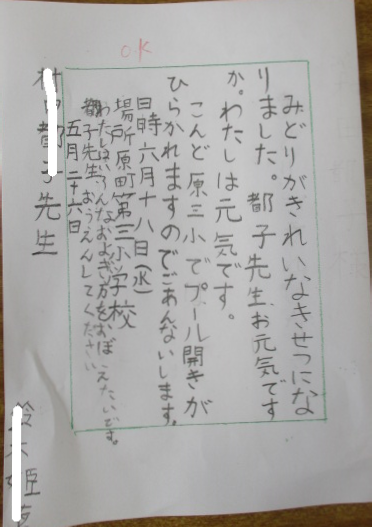 OK
みどりがきれいなきせつにな
りました。都子先生お元気です
か。わたしは元気です。
こんど原三小でプール開きが
ひらかれますのでごあんないします。
日時 六月十八日(水)
場所 原町第三小学校
わたしはいろんなおよぎ方をおぼえたいです。
都子先生、おうえんしてください。
五月二十六日
都子先生